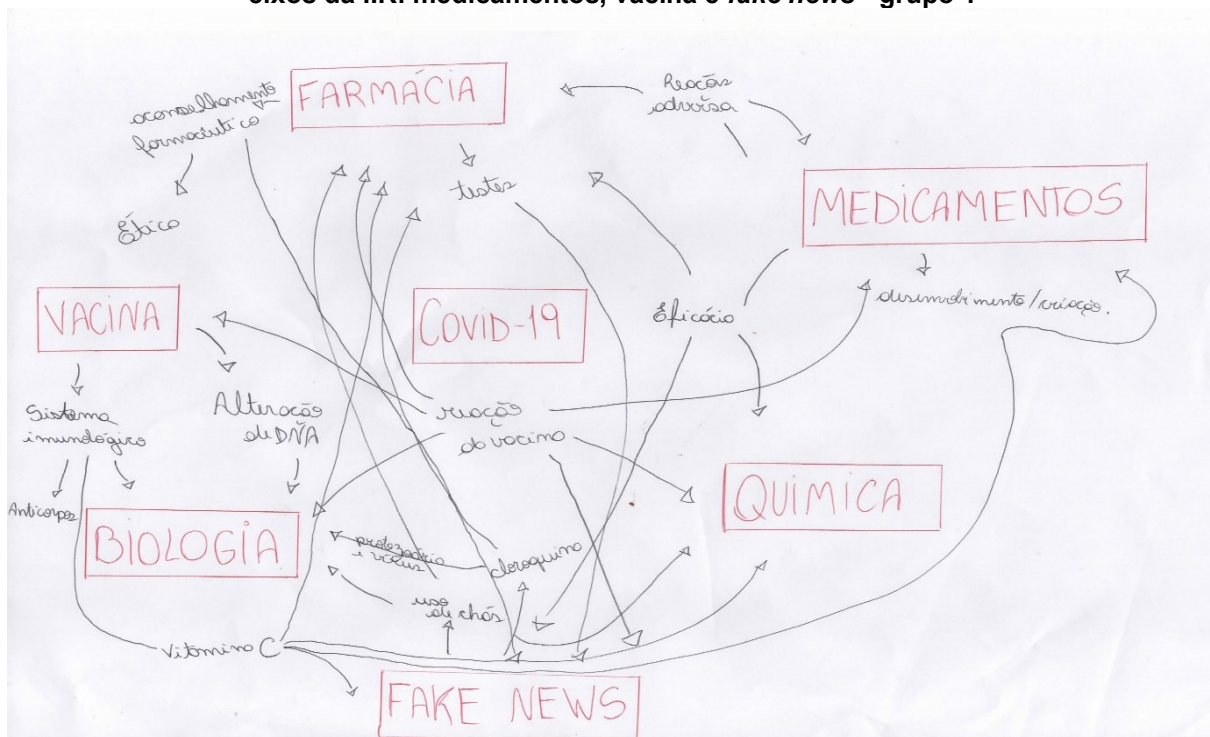 eixos da IIR: medicamentos, vacina e fake news - grupo 1
FARMÁCIA
aconselhamento
farmacêutico
Reação
adversa
testes
Ético
MEDICAMENTOS
VACINA
COVID-19
Eficácia
desenvolvimento/criação.
Sistema
imunológico
Alteração
de DNA
reação
da vacina
Anticorpos
BIOLOGIA
QUÍMICA
protozoário
e vírus
cloroquina
uso
de chás
Vitamina C
FAKE NEWS